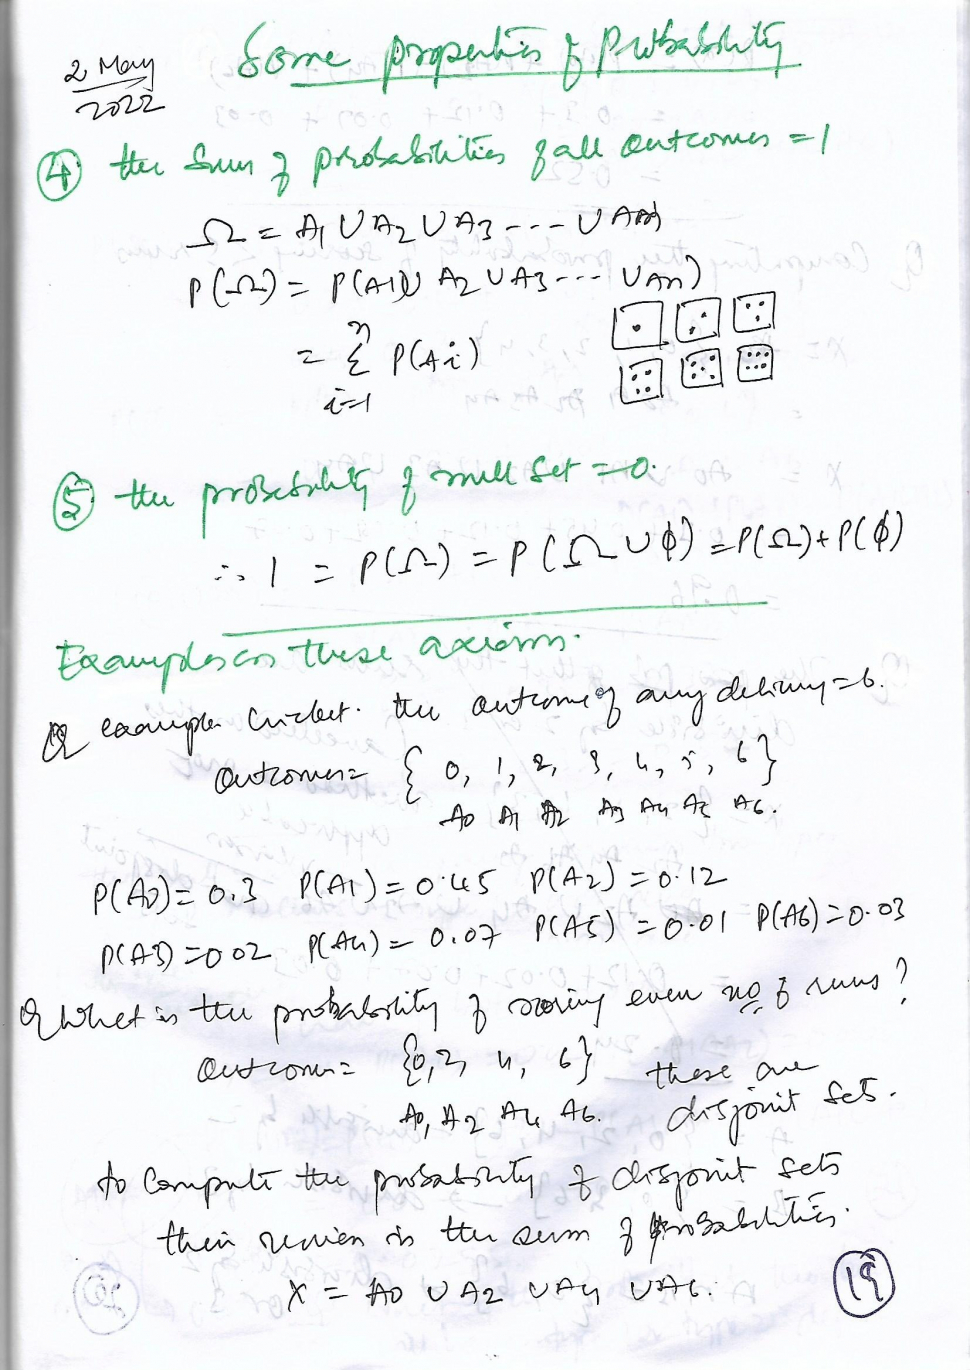 Some properties of Probability
2 May
2022
④ the Sum of probabilities of all outcomes = 1
Ω = A1 ∪ A2 ∪ A3 --- ∪ An
P(Ω) = P(A1 ∪ A2 ∪ A3 --- ∪ An)
n
= Σ P(Ai)
i=1
⑤ the probability of null set = 0.
∴ 1 = P(Ω) = P(Ω ∪ ϕ) = P(Ω) + P(ϕ)
Examples on these axioms.
Q example cricket. the outcome of any delivery = 6.
outcomes = { 0, 1, 2, 3, 4, 5, 6 }
A0 A1 A2 A3 A4 A5 A6.
P(A0) = 0.3 P(A1) = 0.45 P(A2) = 0.12
P(A3) = 0.02 P(A4) = 0.07 P(A5) = 0.01 P(A6) = 0.03
Q What is the probability of scoring even no of runs?
Outcome = {0, 2, 4, 6} these are
A0, A2 A4 A6. disjoint sets.
to compute the probability of disjoint sets
their union is the sum of probabilities.
X = A0 ∪ A2 ∪ A4 ∪ A6.
19